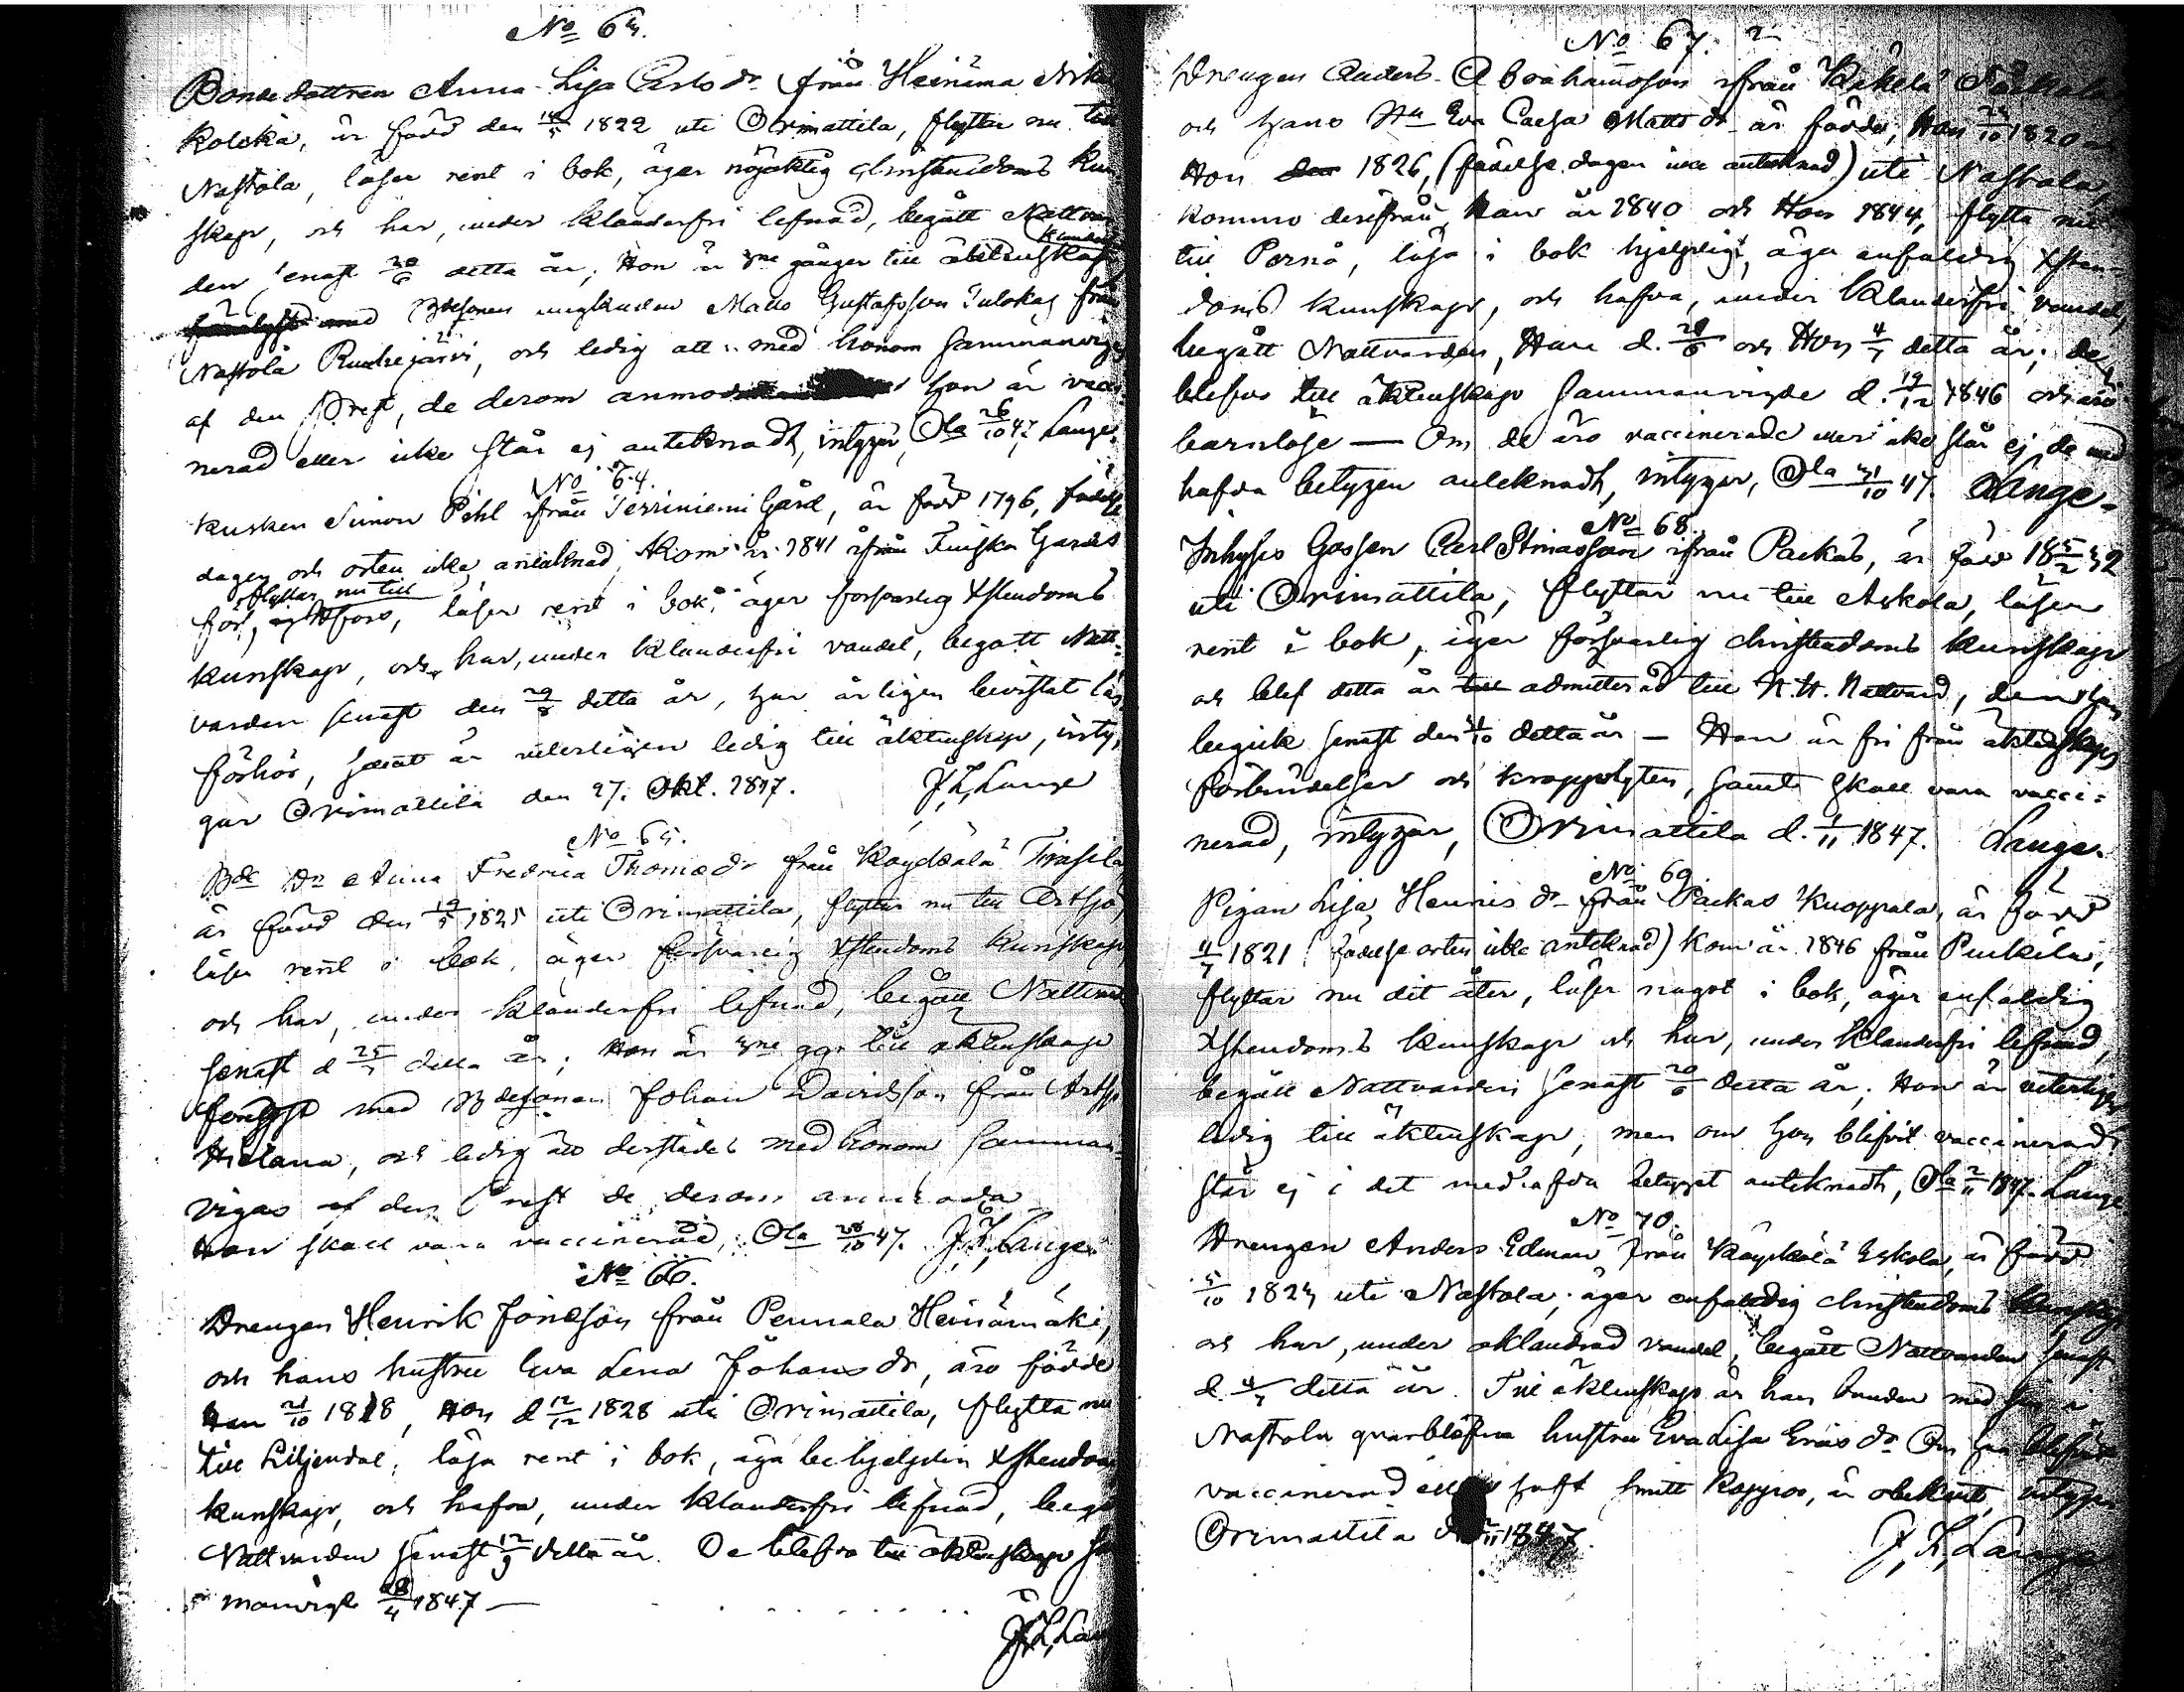 No 63.
Bondedottren Anna Lisa Carlsdr från Heinämaa
koleka, är född den 18/5 1822 uti Orimattila, flyttar nu till
Nastola, läser rent i bok, äger nöjaktig christendoms kun
skap, och har, under klanderfri lefnad, begått Nattvar
den senast 20/6 detta år; Hon är 3ne gånger till äktenskap
med Bdesonen ynglingen Matts Gustafsson från
Nastola Ruuhijärvi, och ledig att med honom sammanvigas
af den Prest, de derom anmoda han är vacci
nerad eller icke står ej anteknadt, intygar, Ola 26/10 47, Lange.
No 64.
Kusken Simon Pihl ifrån Terriniemi Gård, är född 1796, födelse
dagen och orten icke anteknad, Kom år 1841 ifrån Finska Gardes
flyttar nu till
för, läser rent i bok, äger forsvarlig Xstendoms
kunskap, och har, under klanderfri vandel, begått Natt-
varden senast den 29/8 detta år, har årligen bevistat läs
förhör, samt är veterligen ledig till äktenskap, inty-
gar Orimattila den 27. Okt. 1847. J. L. Lange
No 65.
Bde Dr Anna Fredrica Thomædr från Köyskälä
är född den 19/5 1825 uti Orimattila, flyttar nu till Artsjö,
läser rent i bok, äger försvarlig Xstendoms kunskap
och har, under klanderfri lefnad, begått Nattvard
senast d 25/7 detta år; Hon är 3ne ggr till äktenskap
med Bdesonen Johan Davidsson från Artsjö
och ledig att derstädes med honom samman-
vigas af den Prest de derom anmoda
Hon skall vara vaccinerad, Ola 28/10 47. J. L. Lange
No 66.
Drengen Henrik Jönsson från Pennala Heinämäki,
och hans hustru Eva Lena Johansdr, äro födde
Han 21/10 1818, Hon d 12/12 1828 uti Orimattila, flytta nu
till Liljendal; läsa rent i bok, äga behjelplig Xstendoms
kunskap, och hafva, under klanderfri lefnad, begå
Nattvarden senast 12/9 detta år. De blefvo till äktenskap
manvigde 4 1847 —
J. L. Lan
No 67.
Drengen Anders Abrahamsson ifrån
och hans Hu Eva Caisa Mattsdr är födde, Han 24/10 1820
Hon 1826, (födelse dagen icke anteknad) uti Nastola,
komme derifrån, han år 1840 och Hon 1844, flytta nu
till Pernå, läsa i bok hjelpligt, äga enfaldig Xsten-
doms kunskap, och hafva, under klanderfri vandel,
begått Nattvarden, Han d. 20/6 och Hon 4/7 detta år; de
blefvo till äktenskap sammanvigde d. 19/12 1846 och äro
barnlöse — Om de äro vaccinerade eller icke står ej de med
hafda betygen anteknadt, intygar, Ola 31/10 47. Lange.
No 68.
Inhyses Gossen Carl ifrån Packas, är född 18 5/2 32
uti Orimattila, flyttar nu till Askola, läser
rent i bok, äger försvarlig christendoms kunskap
och blef detta år admitterad till H. H. Nattvard, den han
begick senast den /10 detta år — Han är fri från äktenskaps
förbindelser och kropps lyten, samt skall vara vacci-
nerad, intygar, Orimattila d. 1/11 1847. Lange.
No 69.
Pigan Lisa Henricsdr från Packas Kuoppala, är född
4/7 1821 (födelse orten icke anteknad) Kom år 1846 från Pukkila,
flyttar nu dit åter, läser något i bok, äger enfaldig
Xstendoms kunskap och har, under klanderfri lefnad,
begått Nattvarden senast 20/6 detta år; Hon är veterligen
ledig till äktenskap, men om hon blifvit vaccinerad
står ej i det medhafda betyget anteknadt, Ola 2/11 1847. Lange
No 70.
Drengen Anders Edman från Käykälä Eskola, är född
5/10 1823 uti Nastola; äger enfaldig christendoms kunskap
och har, under oklandrad vandel, begått Nattvarden senast
d. 4/7 detta år. Till äktenskap är han bunden med sin i
Nastola quarblefna hustru Eva Lisa Eriksdr Om han blifvit
vaccinerad eller haft smitt koppor, är obekant, intygar
Orimattila 1847. J. L. Lange